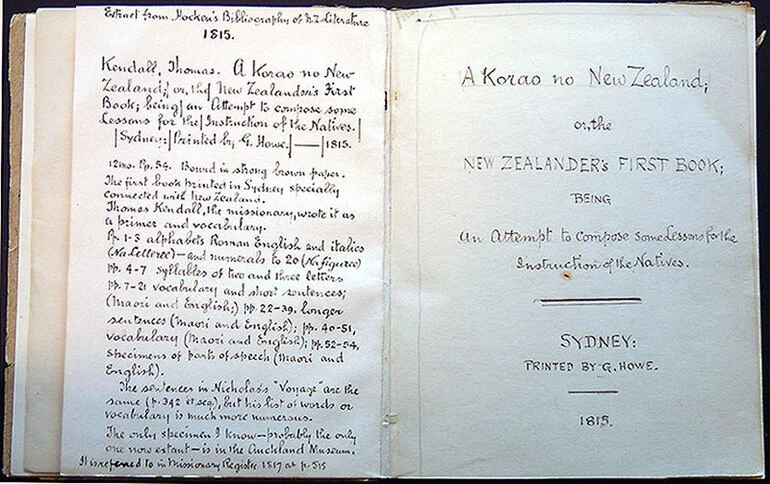 Extract from Hocken's Bibliography of N.Z. Literature
1815.
Kendall, Thomas. A Korao no New
Zealand; or, the New Zealander's First
Book; being an Attempt to compose some
Lessons for the Instruction of the Natives.
Sydney: Printed by G. Howe. — 1815.
12mo. Pp. 54. Bound in strong brown paper.
The first book printed in Sydney specially
connected with New Zealand.
Thomas Kendall, the missionary, wrote it as
a primer and vocabulary.
Pp. 1-3 alphabets Roman English and italics
(Na Letteree) — and numerals to 20 (Na figuree)
pp. 4-7 Syllables of two and three letters
pp. 7-21 vocabulary and short sentences;
(Maori and English;) pp. 22-39, longer
sentences (Maori and English); pp. 40-51,
vocabulary (Maori and English); pp. 52-54,
specimens of parts of speech (Maori and
English).
The sentences in Nicholas's "Voyage" are the
same (p. 342 et seq), but his list of words or
vocabulary is much more numerous.
The only specimen I know — probably the only
one now extant — is in the Auckland Museum.
It is referred to in Missionary Register 1817 at p. 515
A Korao no New Zealand;
or, the
NEW ZEALANDER's FIRST BOOK;
BEING
An Attempt to compose some Lessons for the
Instruction of the Natives.
SYDNEY:
PRINTED BY G. HOWE.
1815.